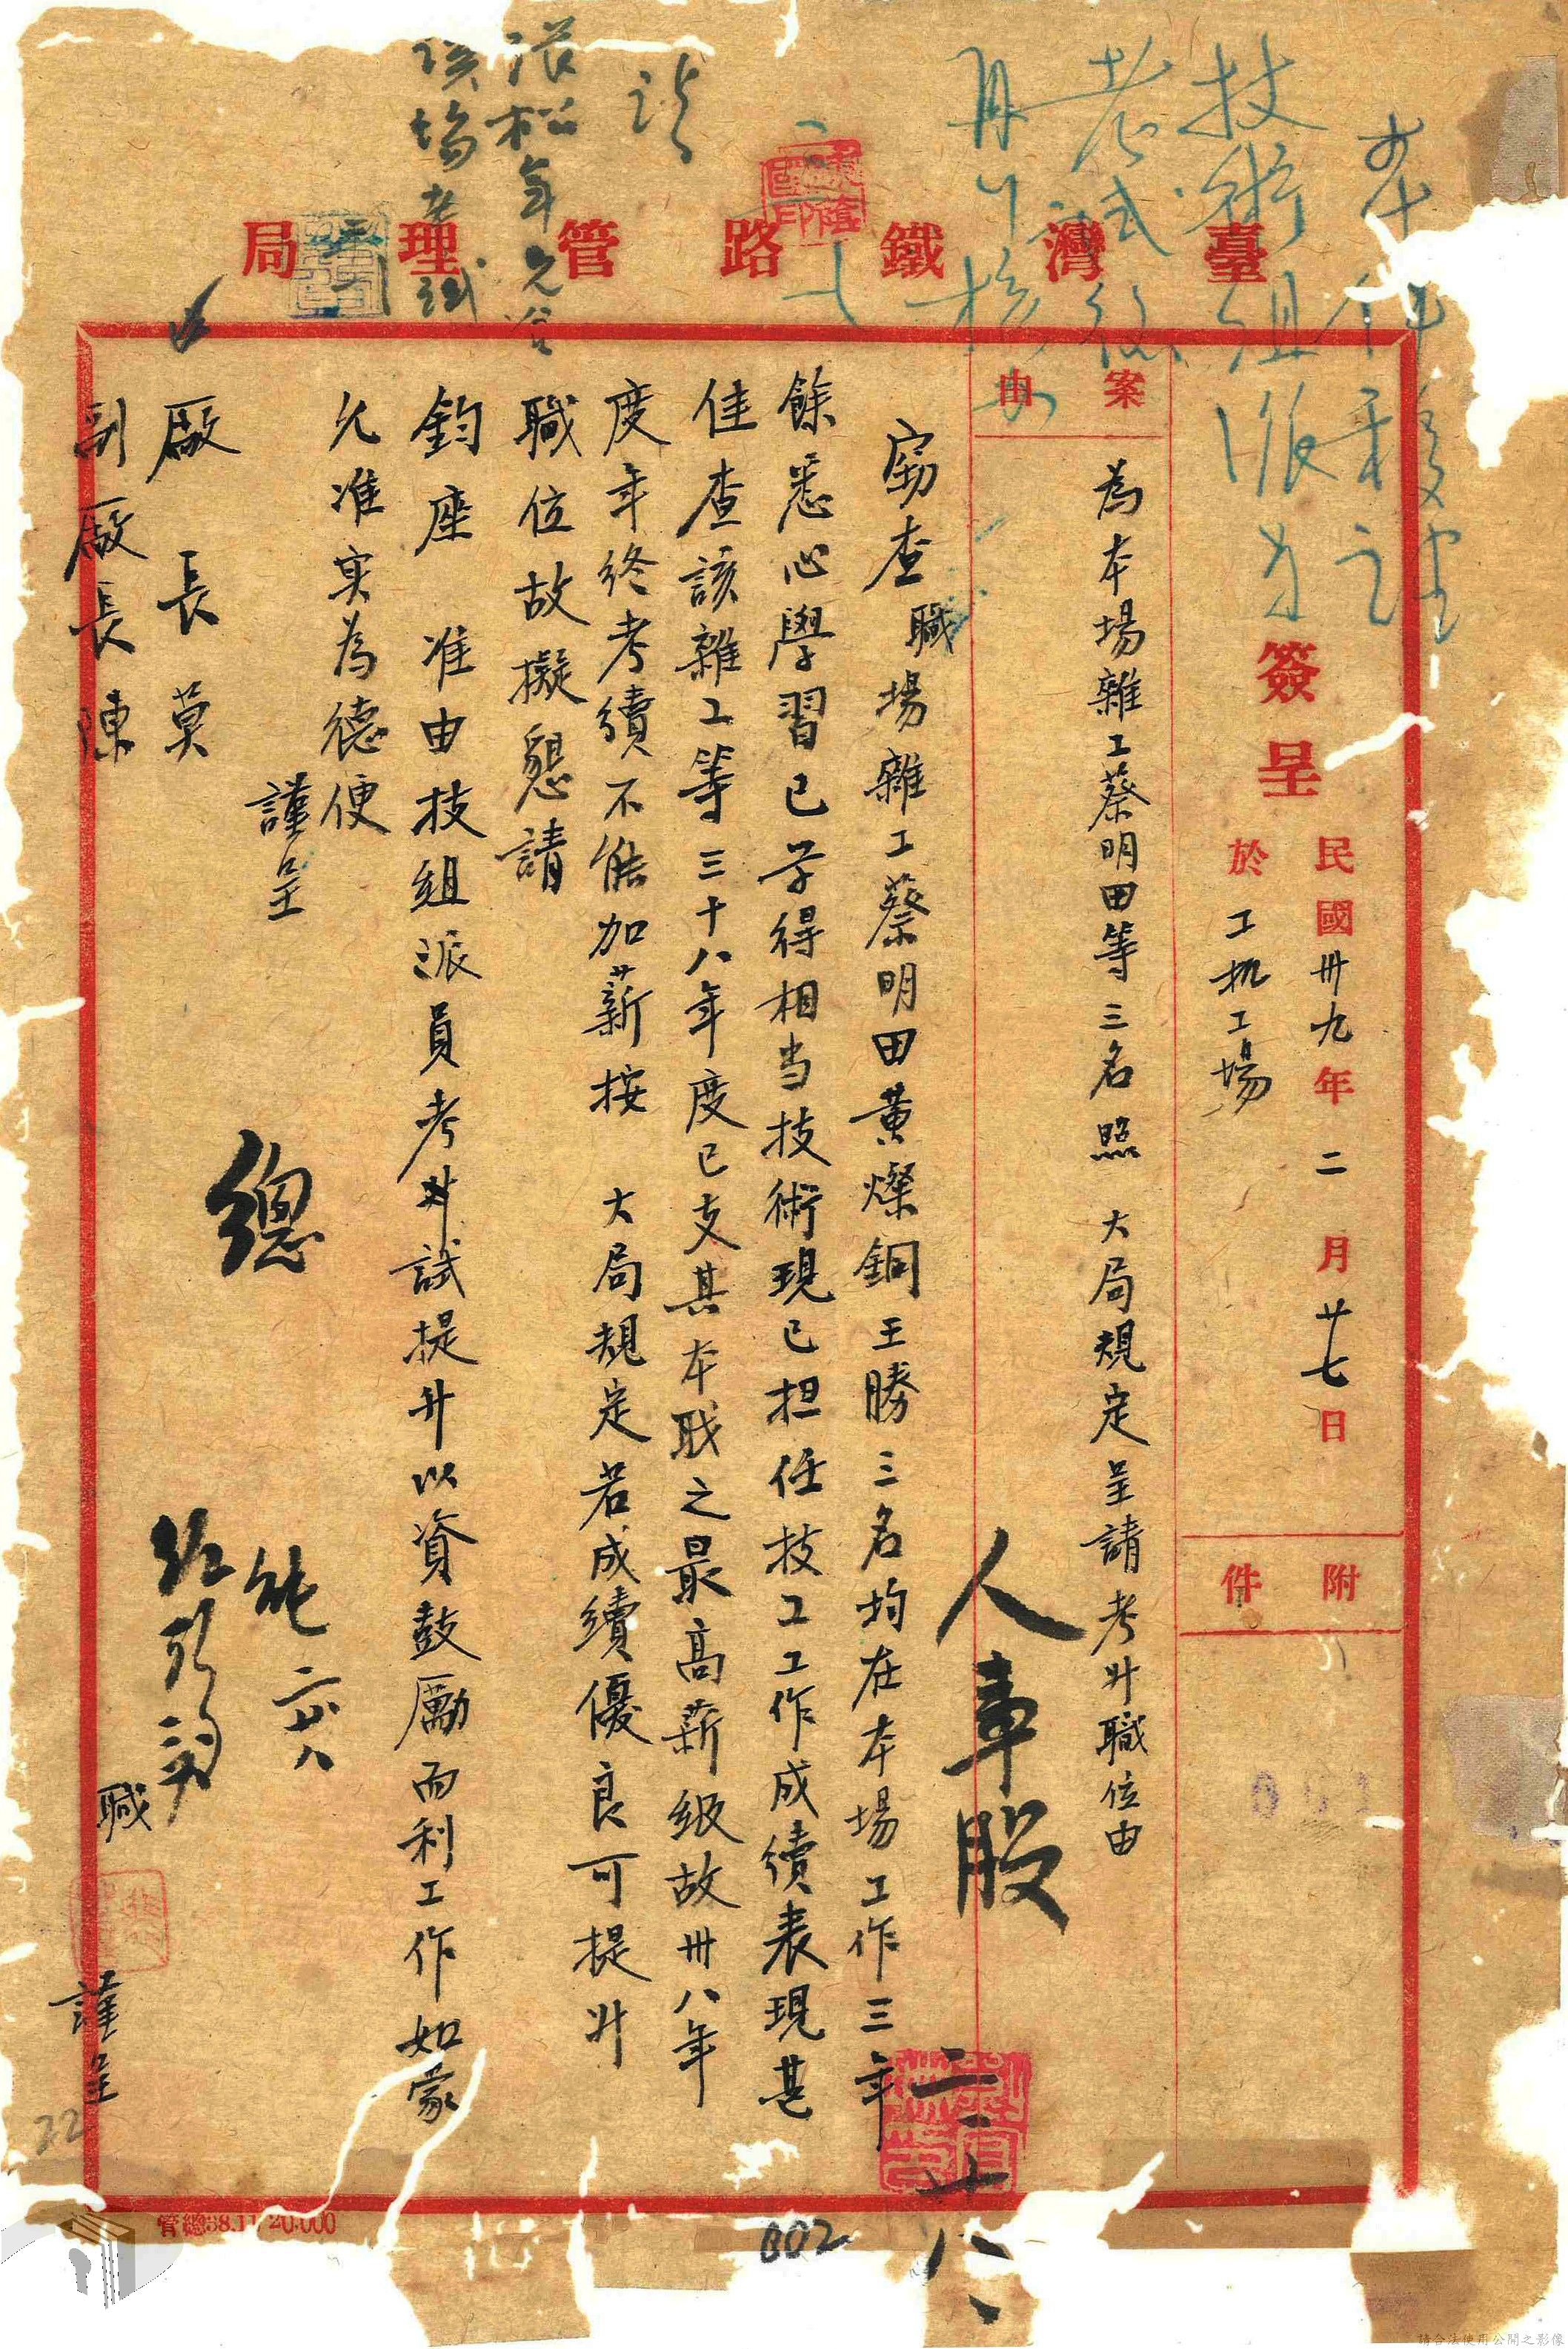 臺灣鐵路管理局
簽呈
民國卅九年二月廿七日
於工机工場
附件
案由
為本場雜工蔡明田等三名照 大局規定呈請考升職位由
竊查職場雜工蔡明田黃燦銅王勝三名均在本場工作三年
餘悉心學習已学得相当技術現已担任技工工作成績表現甚
佳查該雜工等三十八年度已支其本職之最高薪級故卅八年
度年終考績不能加薪按 大局規定若成績優良可提升
職位故擬懇請
鈞座 准由技組派員考升試提升以資鼓厲而利工作如蒙
允准实為德便
謹呈
廠長莫
副廠長陳
職
謹呈
人事股
二 廿八
總
技術組派
考試後
再行核
張松年
該場考試
002
22
管總38.11/20.000
請合法使用公開之影像